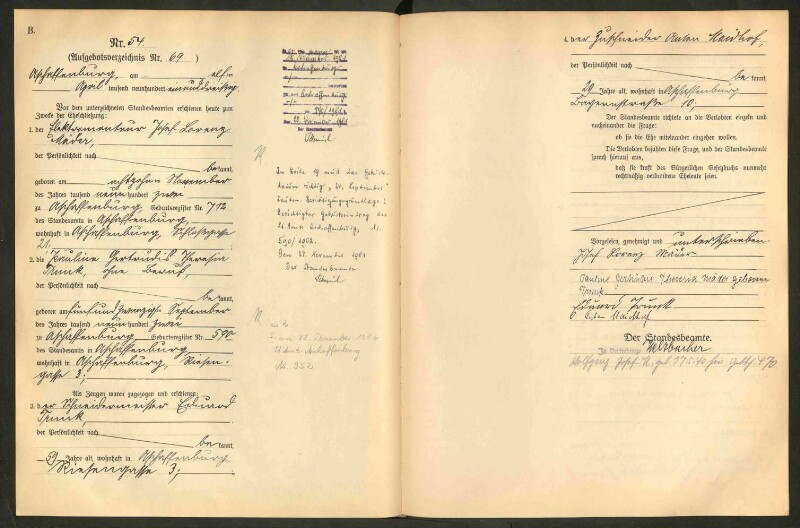 B.
Nr. 54.
(Aufgebotsverzeichnis Nr. 69.)
Aschaffenburg, am elften
April tausend neunhundert einunddreißig.
Vor dem unterzeichneten Standesbeamten erschienen heute zum
Zwecke der Eheschließung:
1. der Elektromonteur Josef Lorenz
Mäder,
der Persönlichkeit nach
bekannt,
geboren am achtzehnten November
des Jahres tausend neunhundert zwei
zu Aschaffenburg, Geburtsregister Nr. 712
des Standesamts in Aschaffenburg,
wohnhaft in Aschaffenburg, Schloßgasse
21;
2. die Pauline Gertrudis Theresia
Trunk, ohne Beruf,
der Persönlichkeit nach
bekannt,
geboren am fünfundzwanzigsten September
des Jahres tausend neunhundert zwei
zu Aschaffenburg, Geburtsregister Nr. 590
des Standesamts in Aschaffenburg,
wohnhaft in Aschaffenburg, Riesen-
gasse 3;
Als Zeugen waren zugezogen und erschienen:
3. der Schneidermeister Eduard
Trunk,
der Persönlichkeit nach
bekannt,
59 Jahre alt, wohnhaft in Aschaffenburg
Riesengasse 3;
Aschaffenburg
Aschaffenburg
590/1902
Der Standesbeamte
In Zeile 19 muß das Geburts-
datum richtig "20. September"
lauten. Berichtigungsgrundlage:
Berichtigter Geburtseintrag des
St.Amts Aschaffenburg, Nr.
590/1902.
Den 28. November 1961
Der Standesbeamte
zu 2
Dezember
St.Amt Aschaffenburg
Nr. 952
4. der Zuschneider Anton Maidhof,
der Persönlichkeit nach
bekannt,
29 Jahre alt, wohnhaft in Aschaffenburg
10;
Der Standesbeamte richtete an die Verlobten einzeln und
nacheinander die Frage:
ob sie die Ehe miteinander eingehen wollen.
Die Verlobten bejahten diese Frage, und der Standesbeamte
sprach hierauf aus,
daß sie kraft des Bürgerlichen Gesetzbuchs nunmehr
rechtmäßig verbundene Eheleute seien.
Vorgelesen, genehmigt und unterschrieben
Josef Lorenz Mäder
Pauline Gertrudis Theresia Mäder geborene
Trunk
Eduard Trunk
Anton Maidhof
Der Standesbeamte.
In Vertretung:
Welzbacher